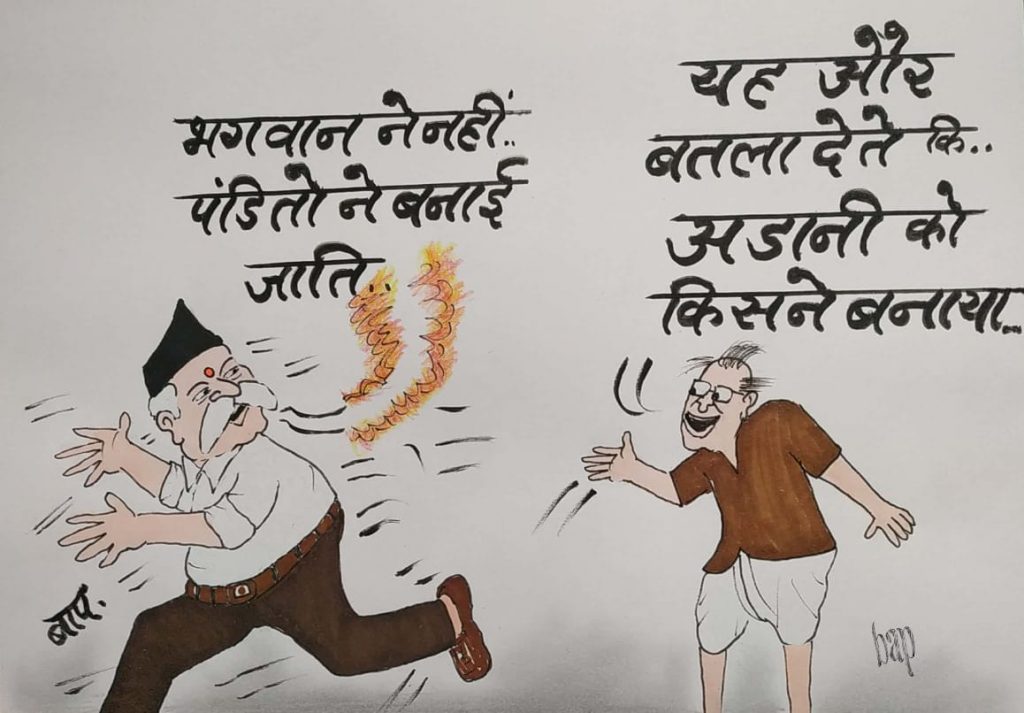 भगवान ने नहीं..
पंडितो ने बनाई
जाति...
यह और
बतला देते कि..
अडानी को
किसने बनाया...
बाप.
bap